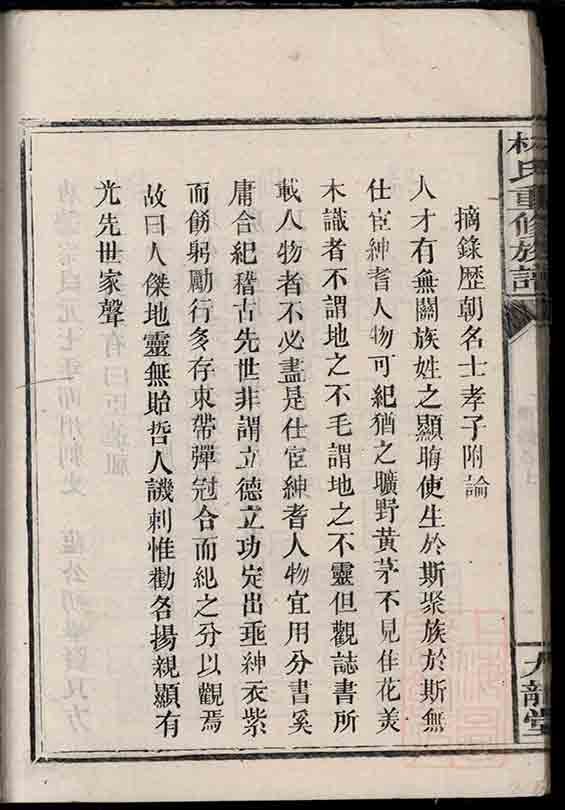 林氏重修族譜
九龍堂
摘錄歷朝名士孝子附論
人才有無關族姓之顯晦使生於斯聚族於斯無
仕宦紳耆人物可紀猶之曠野黃茅不見佳花美
木識者不謂地之不毛謂地之不靈但觀誌書所
載人物者不必盡是仕宦紳耆人物宜用分書奚
庸合紀稽古先世非謂立德立功定出乖紳衣紫
而飭躬勵行多存束帶彈冠合而紀之分以觀焉
故曰人傑地靈無貽哲人譏刺惟勸各揚親顯有
光先世家聲